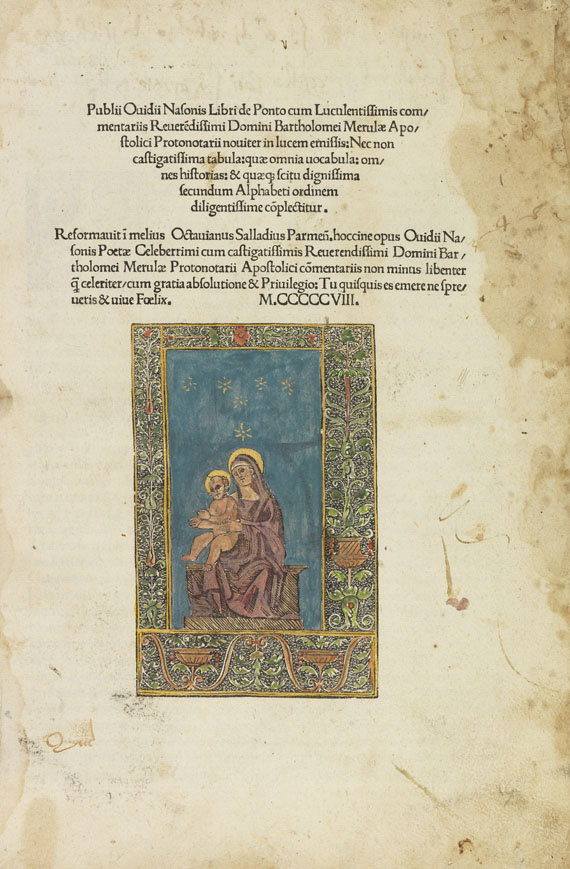 Publii Ouidii Nasonis Libri de Ponto cum Luculentissimis com/
mentariis Reuerẽdissimi Domini Bartholomei Merulæ Apo/
stolici Protonotarii nouiter in lucem emissis: Nec non
castigatissima tabula: quæ omnia uocabula: om/
nes historias: & quæq; scitu dignissima
secundum Alphabeti ordinem
diligentissime cõplectitur.
Reformauit ĩ melius Octauianus Salladius Parmeñ. hoccine opus Ouidii Na/
sonis Poetæ Celeberrimi cum castigatissimis Reuerendissimi Domini Bar/
tholomei Merulæ Protonotarii Apostolici cõmentariis non minus libenter
q̃ celeriter/cum gratia absolutione & Priuilegio: Tu quisquis es emere ne spre/
ueris & uiue Fœlix. M.CCCCCVIII.